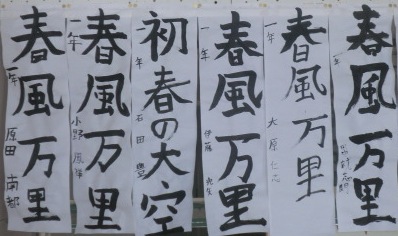 春風万里
一年
春風万里
一年 大原
初春の大空
一年 石田 豊
春風万里
一年 伊藤
春風万里
一年 小野
春風万里
一年 原田